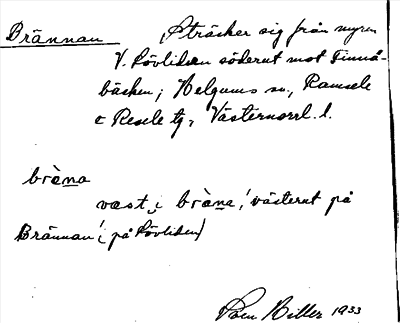 Brännan Sträcker sig från myren
V. Lövliden söderut mot Finnå-
bäcken; Helgums sn, Ramsele
o Resele tg, Västernorrl. l.
bràna
væst i bràna, 'västerut på
Brännan' (på Lövliden)
1933